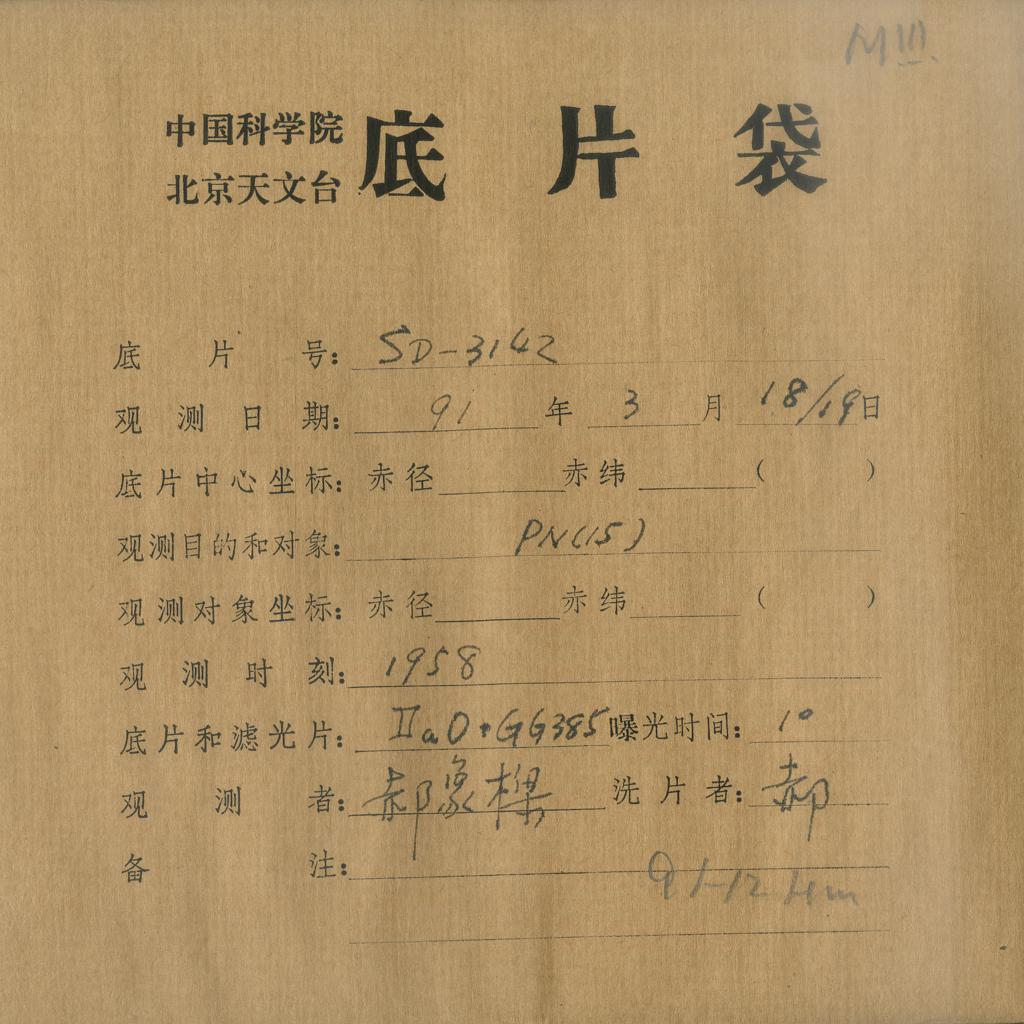 中国科学院
北京天文台
底片袋
底片号： SD-3142
观测日期： 91 年 3 月 18/19 日
底片中心坐标： 赤径 赤纬 （ ）
观测目的和对象： PN(15)
观测对象坐标： 赤径 赤纬 （ ）
观测时刻： 1958
底片和滤光片： IIaO+GG385 曝光时间：
观测者： 郝象樑 洗片者： 郝
备注：